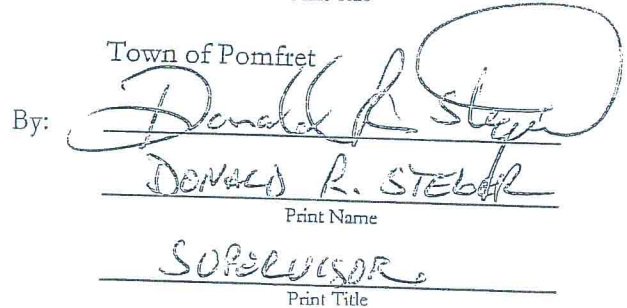 Town of Pomfret
By: Donald R Steger
DONALD R. STEGER
Print Name
SUPERVISOR
Print Title